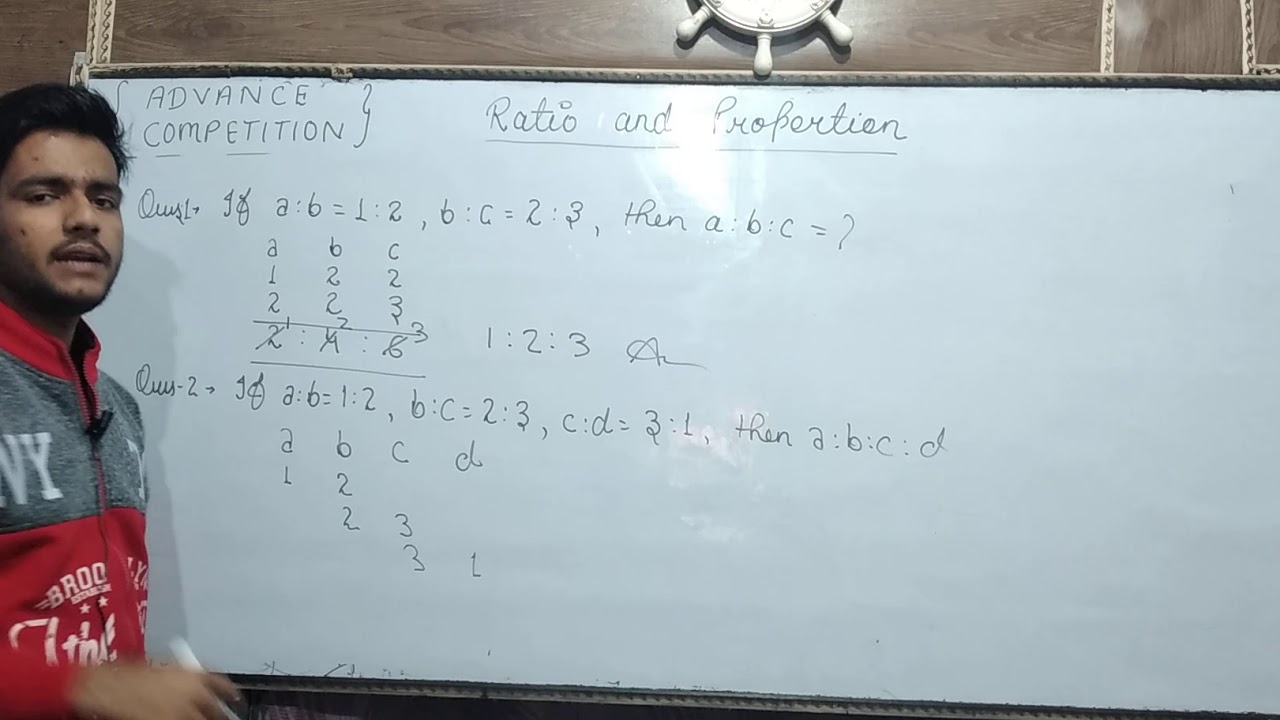 { ADVANCE
COMPETITION }
Ratio and Propertion
Ques1→ If a:b = 1:2 , b:c = 2:3 , then a:b:c = ?
a b c
1 2 2
2 2 3
1 2 3
2 : 4 : 6 1:2:3 A
Ques-2→ If a:b = 1:2 , b:c = 2:3 , c:d = 3:1 , then a:b:c:d
a b c d
1 2
2 3
3 1
NY
BROO